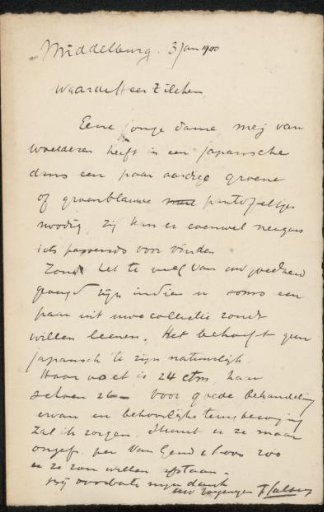 Middelburg. 3 Jan 1900
Waarde Heer Zilcken,
Eene jonge dame mej van
Woelderen heeft in een Japansche
dans een paar aardige groene
of groenblauwe pantoffeltjes
noodig, zij kan er evenwel nergens
iets passends voor vinden
Zoudt het te veel van uw goedheid
gevergd zijn indien u soms een
paar uit uwe collectie zoudt
willen leenen. Het behoeft geen
Japansch te zijn natuurlijk.
Haar voet is 24 ctm, haar
schoen 26 Voor goede behandeling
ervan en behoorlijke terugbezorging
zal ik zorgen. Stuurt u ze maar
ongefr. per Van Gend & Loos zoo
u ze zou willen afstaan.
Bij voorbaat mijn dank
uw toegenegen